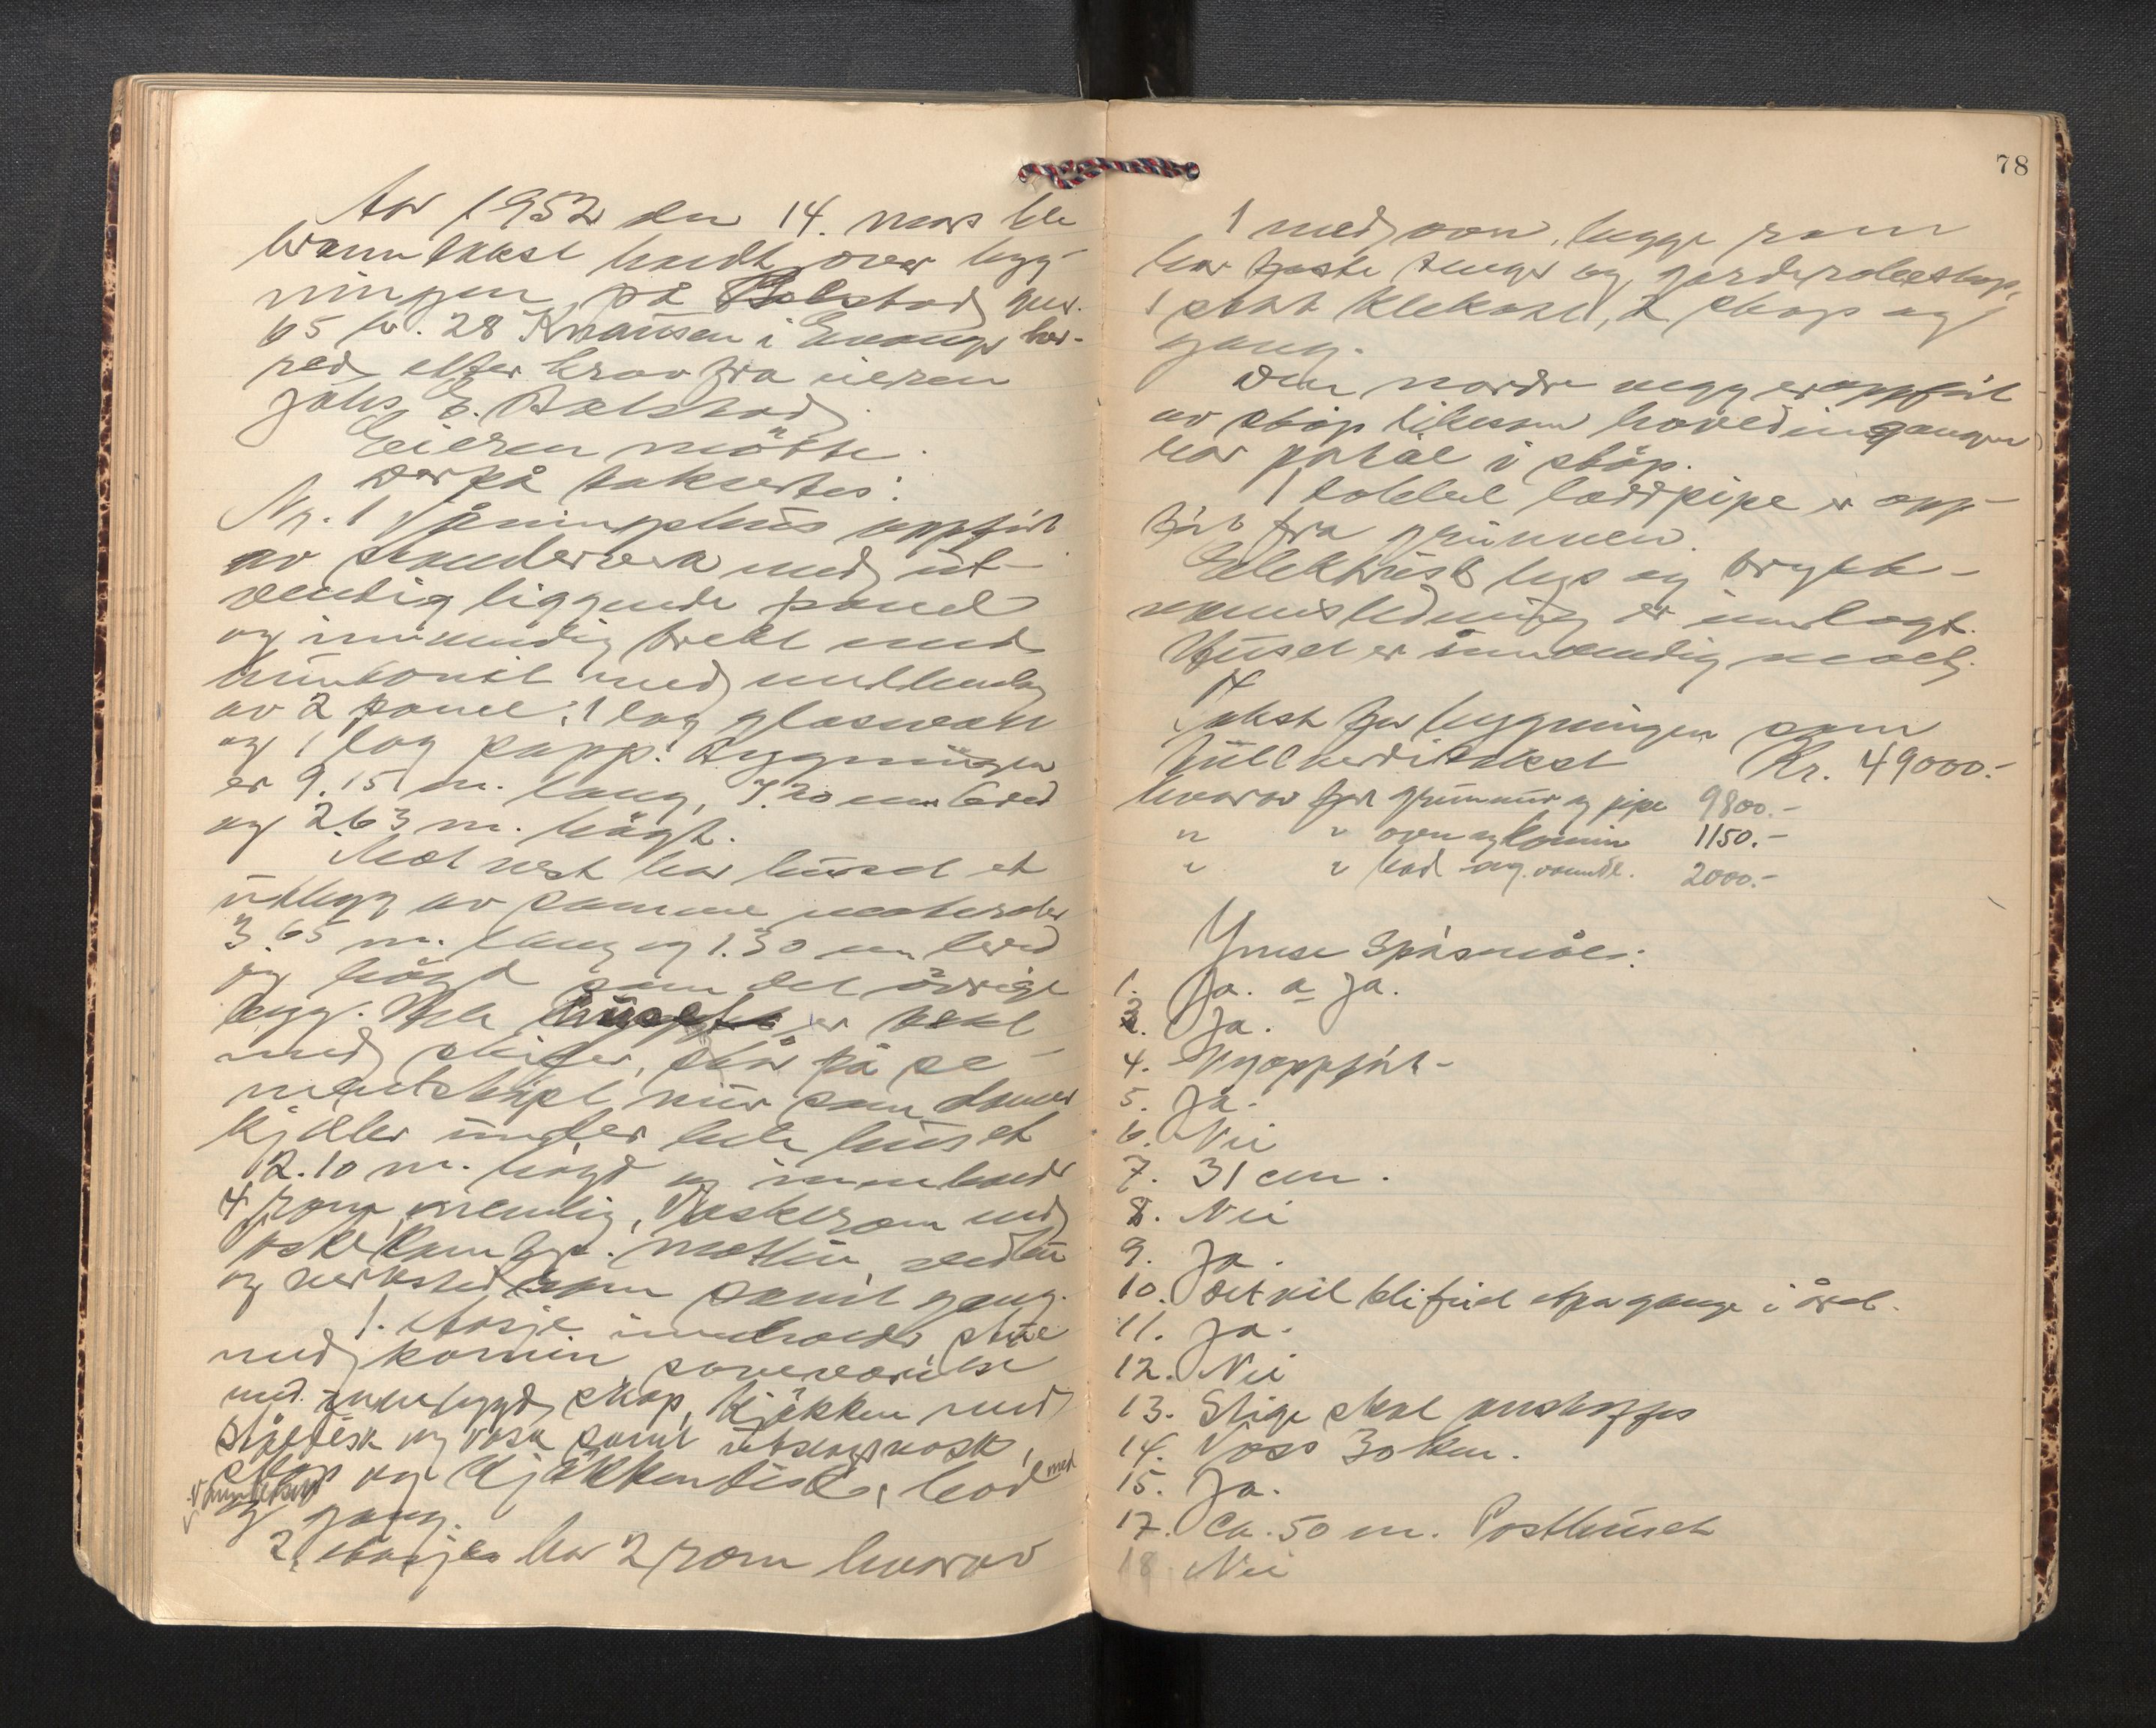 År 1952 den 14. mars ble
branntakst holdt over byg-
ningen på Bolstad gnr.
65 br. 28 Knausen i Evanger her-
red etter krav fra eieren
Johs. E. Bolstad.
Eieren møtte.
Derpå taksertes:
No. 1 Våningshus oppført
av med ut-
vendig liggende panel
og innvendig trekt med
huntonit med mellemlag
av 2 panel, 1 lag glasvatt
og 1 lag papp. Bygningen
er 9.15 m. lang, 7.20 m bred
og 263 m. høgt.
Mot vest har huset et
utbygg av samme materialer
3.65 m. lang og 1.30 m bred
og høgd som det øvrige
bygg. Hele er tekt
med skifer, står på se-
mentstøpt mur som danner
kjeller under hele huset
2.10 m. høgd og inneholder
4 rom nemlig, Vaskerom med
matbu, vedbu
og verkstedrom samt gang.
1. etasje inneholder stue
med komin soveværelse
med innebygd skap, kjøkken med
stålbisk og vask samt utslagsvask,
skap og kjøkkenbisk, bad med
og gang.
2. etasje har 2 rom hvorav
78
1 med ovn, begge rom
har faste senger og garderobeskap,
1 stort klekott, 2 skap og
gang.
Den nordre vegg er oppført
av støp likesom hovedinngangen
har portal i støp.
1 dobbel loddpipe er opp-
ført fra grunnen.
Elektrisk lys og trykk-
vannsledning er innlagt.
Huset er innvendig malt.
Takst for bygningen som
fullverditakst Kr. 49000.-
hvorav for grunnmur og pipe 9800.-
" " ovn og komin 1150.-
" " bad og vannkl. 2000.-
Ymse Spørsmål:
1. Ja. a Ja.
3. Ja.
4. Nyoppført-
5. Ja.
6. Nei
7. 31 cm.
8. Nei
9. Ja.
10. Det vil bli feid et par gange i året.
11. Ja.
12. Nei
13. Stige skal anskaffes
14. Voss 30 km.
15. Ja.
17. Ca. 50 m. Posthuset
18. Nei